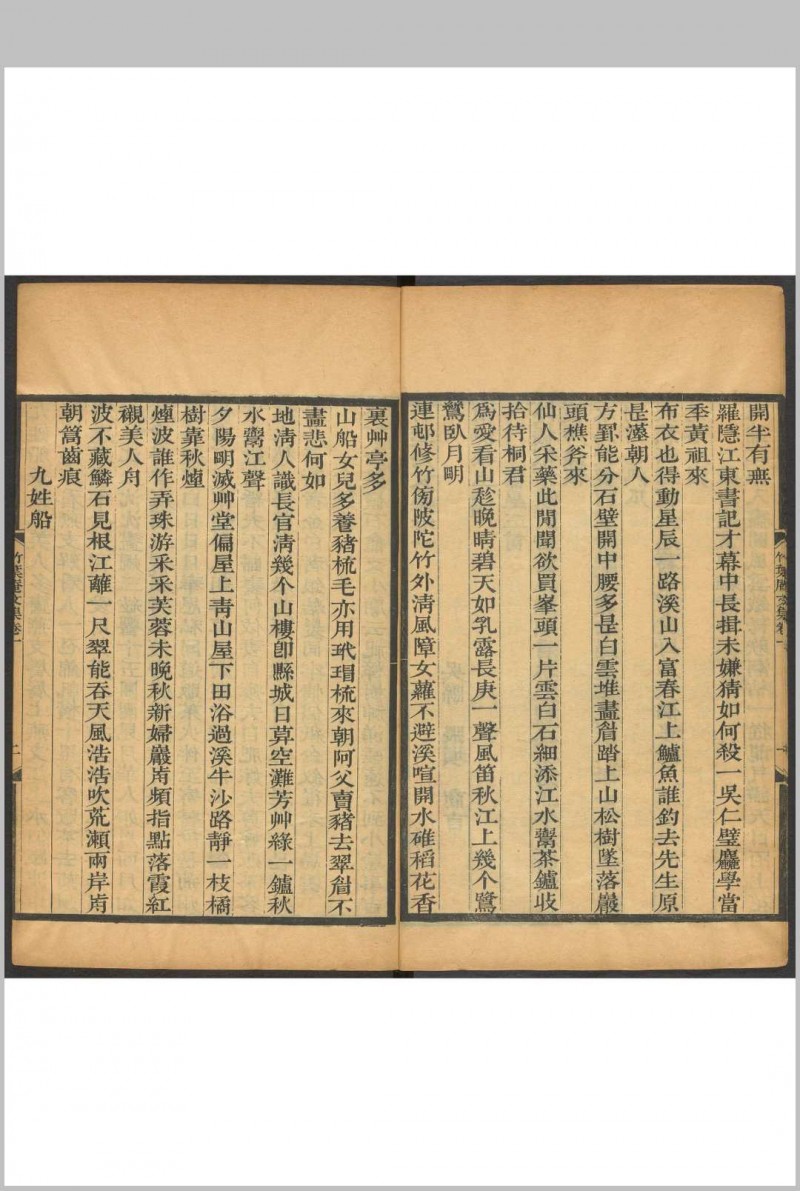 開半有無
羅隱江東書記才幕中長揖未嫌猜如何殺一吳仁璧廳學當
秊黃祖來
布衣也得動星辰一路溪山入富春江上鱸魚誰釣去先生原
是漢朝人
方罫能分石壁開中腰多是白雲堆盡觜踏上山松樹墜落巖
頭樵斧來
仙人采藥此閒聞欲買峯頭一片雲白石細添江水鬻茶鑪歧
拾待桐君
爲愛看山趁晚晴碧天如乳露長庚一聲風笛秋江上幾个鷺
鷥臥月朙
連邨修竹㑀陂陀竹外淸風障女蘿不避溪喧開水碓稻花香
裏艸亭多
山船女兒多養豬梳毛亦用玳瑁梳來朝阿父賣豬去翠觜不
畫悲何如
地淸人識長官淸幾个山樓卽縣城日莫空灘芳艸綠一鑪秋
水鬻江聲
夕陽朙滅艸堂偏屋上靑山屋下田浴過溪牛沙路靜一枝橘
樹靠秋煙
煙波誰作弄珠游采采芙蓉未晚秋新婦巖歬頻指點落霞紅
襯美人舟
波不藏鱗石見根江蘺一尺翠能吞天風浩浩吹荒瀨兩岸歬
朝篙齒痕
九姓船
竹葉庵文集卷一
二